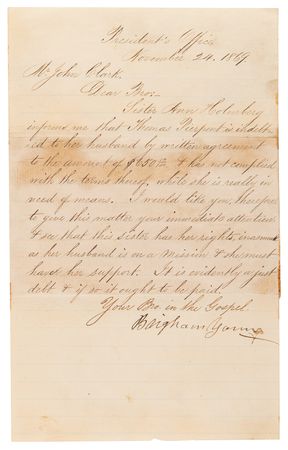 President's Office
November 24, 1869
Mr John Clark,
Dear Bro:-
Sister Ann Holmberg
informs me that Thomas Pierpont is indebt-
ed to her husband by written agreement
to the amount of & has not complied
with the terms thereof, while she is really in
need of means. I would like you, therefore
to give this matter your immediate attention
& see that this sister has her rights, inasmuch
as her husband is on a mission & she must
have her support. It is evidently a just
debt & if so it ought to be paid.
Your Bro. in the Gospel
Brigham Young